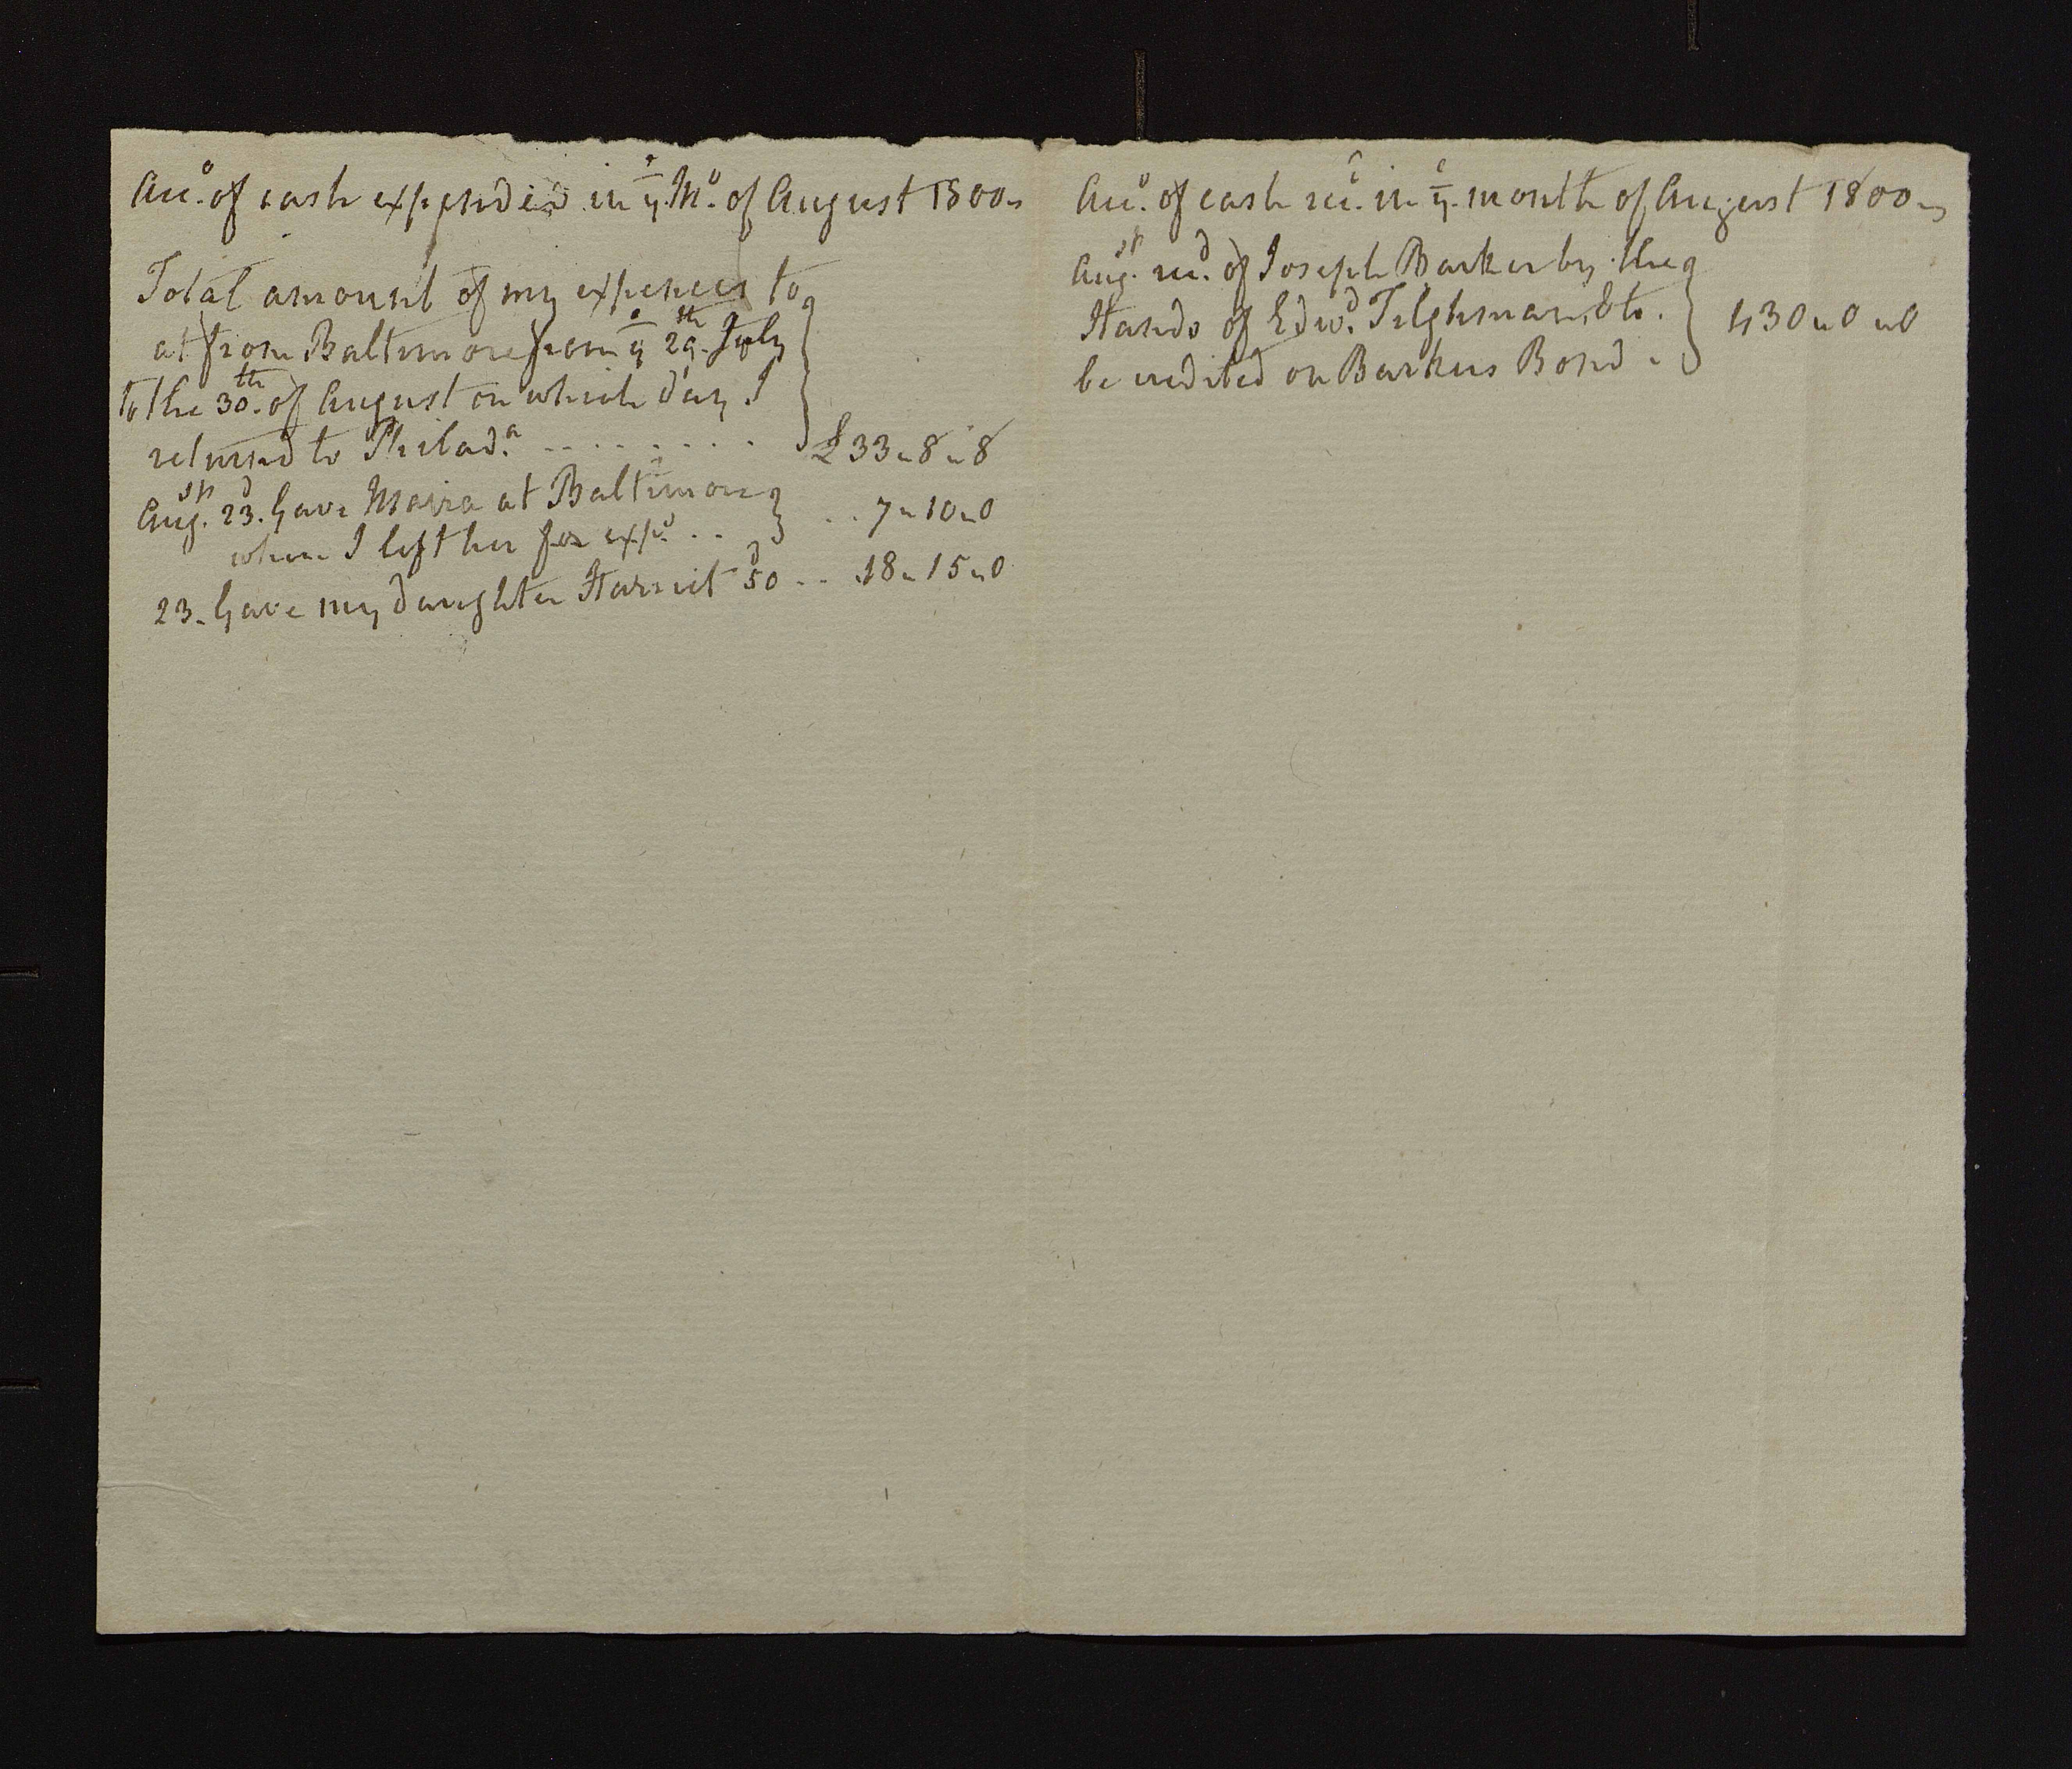 Acc.o of cash expended in ye. Mo. of August 1800
Total amount of my expences to
at & from Baltimore from ye 29.th July
to the 30.th of August on which day I
return'd to Philad.a . . . . . . . . £33 „ 8 „ 8
Aug.st 23.d Gave Maria at Baltimore
when I left her for exp.s . . . . 7 „ 10 „ 0
23. Gave my daughter Harriet 50 d . . 18 „ 15 „ 0
Acc.o of cash rec.d in ye. month of August 1800
Aug.st rec.d of Joseph Barker by the
Hands of Edw.d Tilghman, & to . 430 „ 0 „ 0
be credited on Barkers Bond